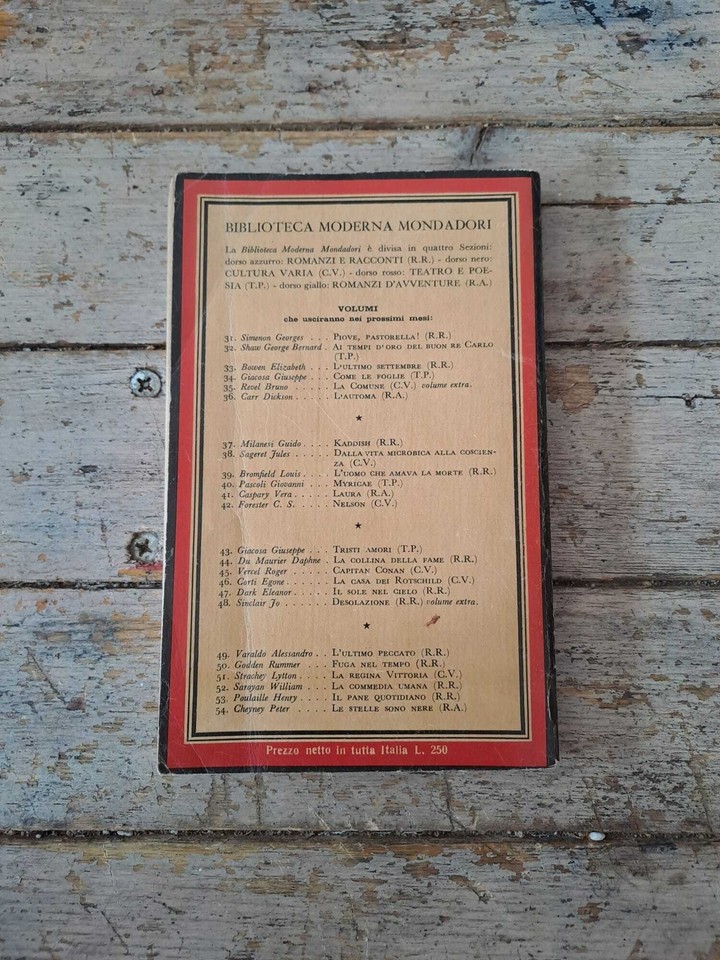 BIBLIOTECA MODERNA MONDADORI
La Biblioteca Moderna Mondadori è divisa in quattro Sezioni:
dorso azzurro: ROMANZI E RACCONTI (R.R.) - dorso nero:
CULTURA VARIA (C.V.) - dorso rosso: TEATRO E POE-
SIA (T.P.) - dorso giallo: ROMANZI D'AVVENTURE (R.A.)
VOLUMI
che usciranno nei prossimi mesi:
31. Simenon Georges . . . PIOVE, PASTORELLA! (R.R.)
32. Shaw George Bernard . AI TEMPI D'ORO DEL BUON RE CARLO
(T.P.)
33. Bowen Elizabeth . . . L'ULTIMO SETTEMBRE (R.R.)
34. Giacosa Giuseppe . . . COME LE FOGLIE (T.P.)
35. Revel Bruno . . . . LA COMUNE (C.V.) volume extra.
36. Carr Dickson . . . . . L'AUTOMA (R.A.)
★
37. Milanesi Guido . . . . KADDISH (R.R.)
38. Sageret Jules . . . . . DALLA VITA MICROBICA ALLA COSCIEN-
ZA (C.V.)
39. Bromfield Louis . . . . L'UOMO CHE AMAVA LA MORTE (R.R.)
40. Pascoli Giovanni . . . MYRICAE (T.P.)
41. Caspary Vera . . . . . LAURA (R.A.)
42. Forester C. S. . . . . . NELSON (C.V.)
★
43. Giacosa Giuseppe . . . TRISTI AMORI (T.P.)
44. Du Maurier Daphne . LA COLLINA DELLA FAME (R.R.)
45. Vercel Roger . . . . . CAPITAN CONAN (C.V.)
46. Corti Egone . . . . . LA CASA DEI ROTSCHILD (C.V.)
47. Dark Eleanor . . . . . IL SOLE NEL CIELO (R.R.)
48. Sinclair Jo . . . . . . DESOLAZIONE (R.R.) volume extra.
★
49. Varaldo Alessandro . . L'ULTIMO PECCATO (R.R.)
50. Godden Rummer . . . FUGA NEL TEMPO (R.R.)
51. Strachey Lytton . . . . LA REGINA VITTORIA (C.V.)
52. Saroyan William . . . . LA COMMEDIA UMANA (R.R.)
53. Poulaille Henry . . . . IL PANE QUOTIDIANO (R.R.)
54. Cheyney Peter . . . . LE STELLE SONO NERE (R.A.)
Prezzo netto in tutta Italia L. 250